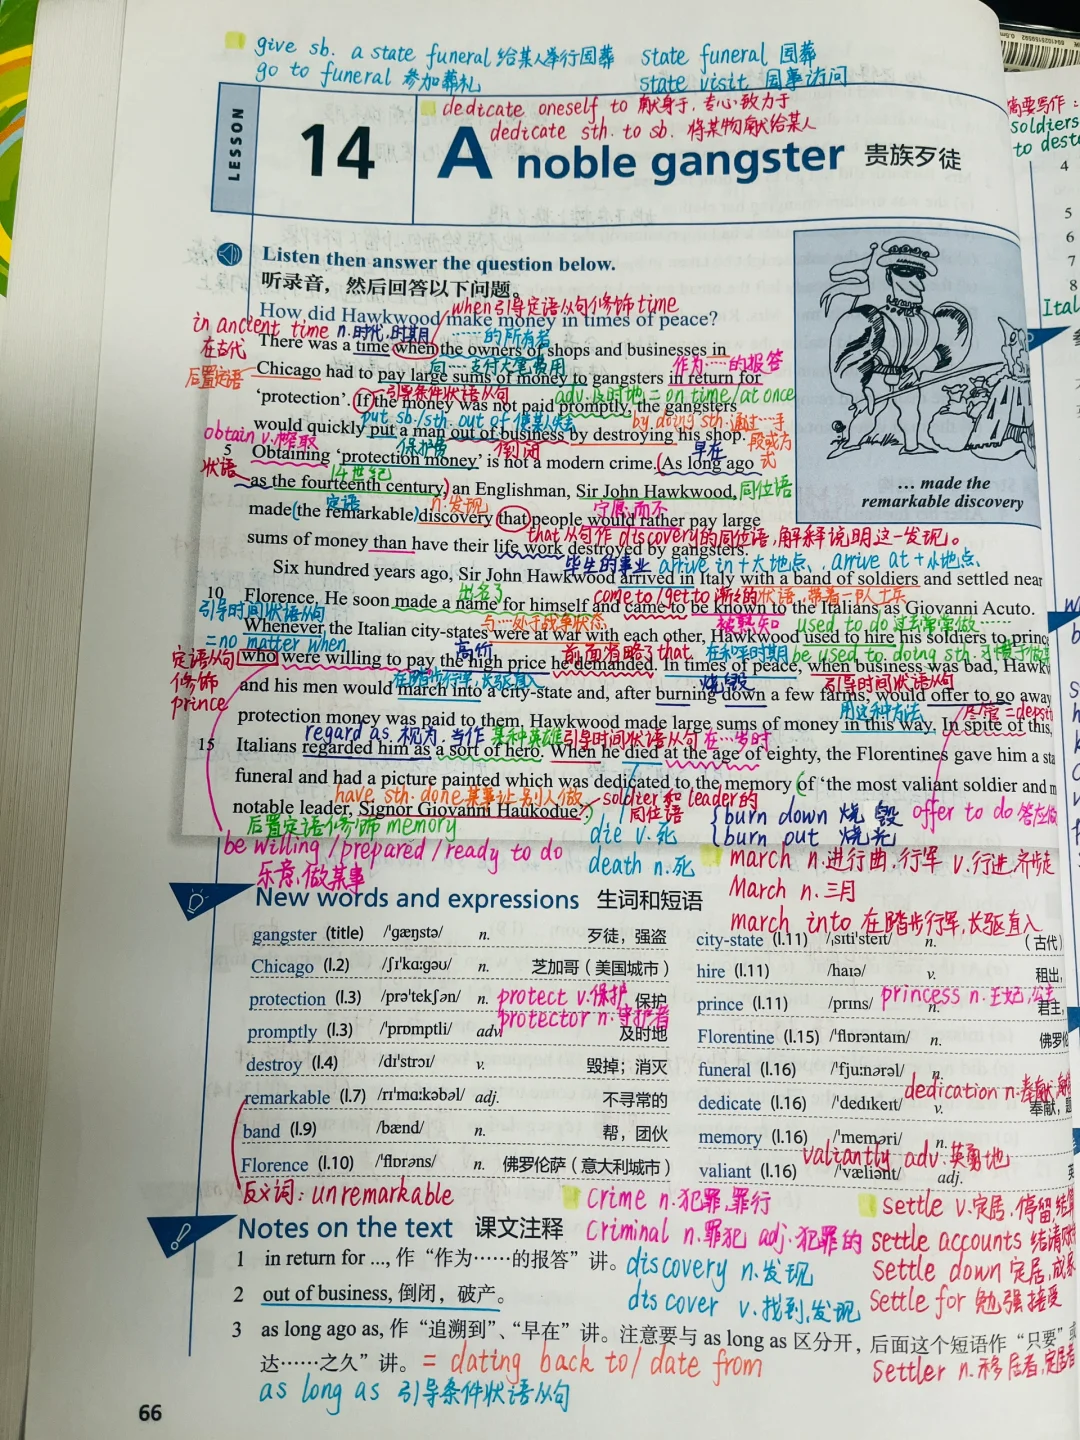 give sb. a state funeral 给某人举行国葬 state funeral 国葬
go to funeral 参加葬礼 state visit 国事访问
dedicate oneself to 献身于,专心致力于
dedicate sth. to sb. 将某物献给某人
LESSON 14 A noble gangster 贵族歹徒
Listen then answer the question below.
听录音，然后回答以下问题。
when引导定语从句修饰time
How did Hawkwood make money in times of peace?
in ancient time n.时代,时期 ……的所有者
在古代
There was a time when the owners of shops and businesses in
向…支付大笔费用 作为……的报答
后置定语
Chicago had to pay large sums of money to gangsters in return for
引导条件状语从句 adv.及时地 = on time/at once
'protection'. If the money was not paid promptly, the gangsters
put sb./sth. out of 使某人失去 by doing sth.通过…手段或方式
would quickly put a man out of business by destroying his shop.
obtain v.榨取 保护费 倒闭 早在
5 Obtaining 'protection money' is not a modern crime. (As long ago
状语 14世纪
as the fourteenth century,) an Englishman, Sir John Hawkwood, 同位语
定语 n.发现 宁愿,而不
made (the remarkable) discovery that people would rather pay large
that从句作discovery的同位语,解释说明这一发现。
sums of money than have their life work destroyed by gangsters.
毕生的事业 arrive in+大地点、, arrive at+小地点、
Six hundred years ago, Sir John Hawkwood arrived in Italy with a band of soldiers and settled near
出名了 come to/get to 渐渐的 状语,带着一队士兵
10 Florence. He soon made a name for himself and came to be known to the Italians as Giovanni Acuto.
引导时间状语从句 与…处于战争状态 被熟知 used to do 过去常常做……
Whenever the Italian city-states were at war with each other, Hawkwood used to hire his soldiers to princ
=no matter when 高价 前面省略了that. 在和平时期 be used to doing sth.
定语从句修饰prince
who were willing to pay the high price he demanded. In times of peace, when business was bad, Hawkw
在踏步行军,长驱直入 烧毁 引导时间状语从句
and his men would march into a city-state and, after burning down a few farms, would offer to go away
用这种方法 尽管=despite
protection money was paid to them, Hawkwood made large sums of money in this way. In spite of this,
regard as 视为,当作 某种英雄 引导时间状语从句 在…岁时
15 Italians regarded him as a sort of hero. When he died at the age of eighty, the Florentines gave him a sta
funeral and had a picture painted which was dedicated to the memory of 'the most valiant soldier and m
have sth. done 某事让别人做 soldier和leader的同位语
notable leader, Signor Giovanni Haukodue'.
后置定语修饰memory
… made the
remarkable discovery
be willing/prepared/ready to do
乐意,做某事
die v.死
death n.死
burn down 烧毁
burn out 烧光
offer to do
march n.进行曲,行军 v.行进,齐步走
March n.三月
march into 在踏步行军,长驱直入
New words and expressions 生词和短语
gangster (title) /ˈɡæŋstə/ n. 歹徒，强盗
Chicago (l.2) /ʃɪˈkɑːɡəʊ/ n. 芝加哥（美国城市）
protection (l.3) /prəˈtekʃən/ n. 保护
protect v.保护
protector n.守护者
promptly (l.3) /ˈprɒmptli/ adv. 及时地
destroy (l.4) /dɪˈstrɔɪ/ v. 毁掉；消灭
remarkable (l.7) /rɪˈmɑːkəbəl/ adj. 不寻常的
band (l.9) /bænd/ n. 帮，团伙
Florence (l.10) /ˈflɒrəns/ n. 佛罗伦萨（意大利城市）
反义词: unremarkable
city-state (l.11) /ˌsɪtiˈsteɪt/ n. （古代）
hire (l.11) /haɪə/ v. 租出，
prince (l.11) /prɪns/ n. 君主，
princess n.王妃,公主
Florentine (l.15) /ˈflɒrəntaɪn/ n. 佛罗伦
funeral (l.16) /ˈfjuːnərəl/ n.
dedication n.奉献
dedicate (l.16) /ˈdedɪkeɪt/ v. 奉献，题
memory (l.16) /ˈmeməri/ n.
valiantly adv.英勇地
valiant (l.16) /ˈvæliənt/ adj. 英
Notes on the text 课文注释
crime n.犯罪,罪行
criminal n.罪犯 adj.犯罪的
settle v.定居,停留
settle accounts
settle down 定居
settle for 勉强接受
settler n.移居者,定居者
1 in return for ..., 作“作为……的报答”讲。
discovery n.发现
2 out of business, 倒闭，破产。
discover v.找到,发现
3 as long ago as, 作“追溯到”、“早在”讲。注意要与 as long as 区分开，后面这个短语作“只要”或
达……之久”讲。= dating back to/date from
as long as 引导条件状语从句
66
摘要写作:
soldiers
to desto
4
5
6
7
8
Ital